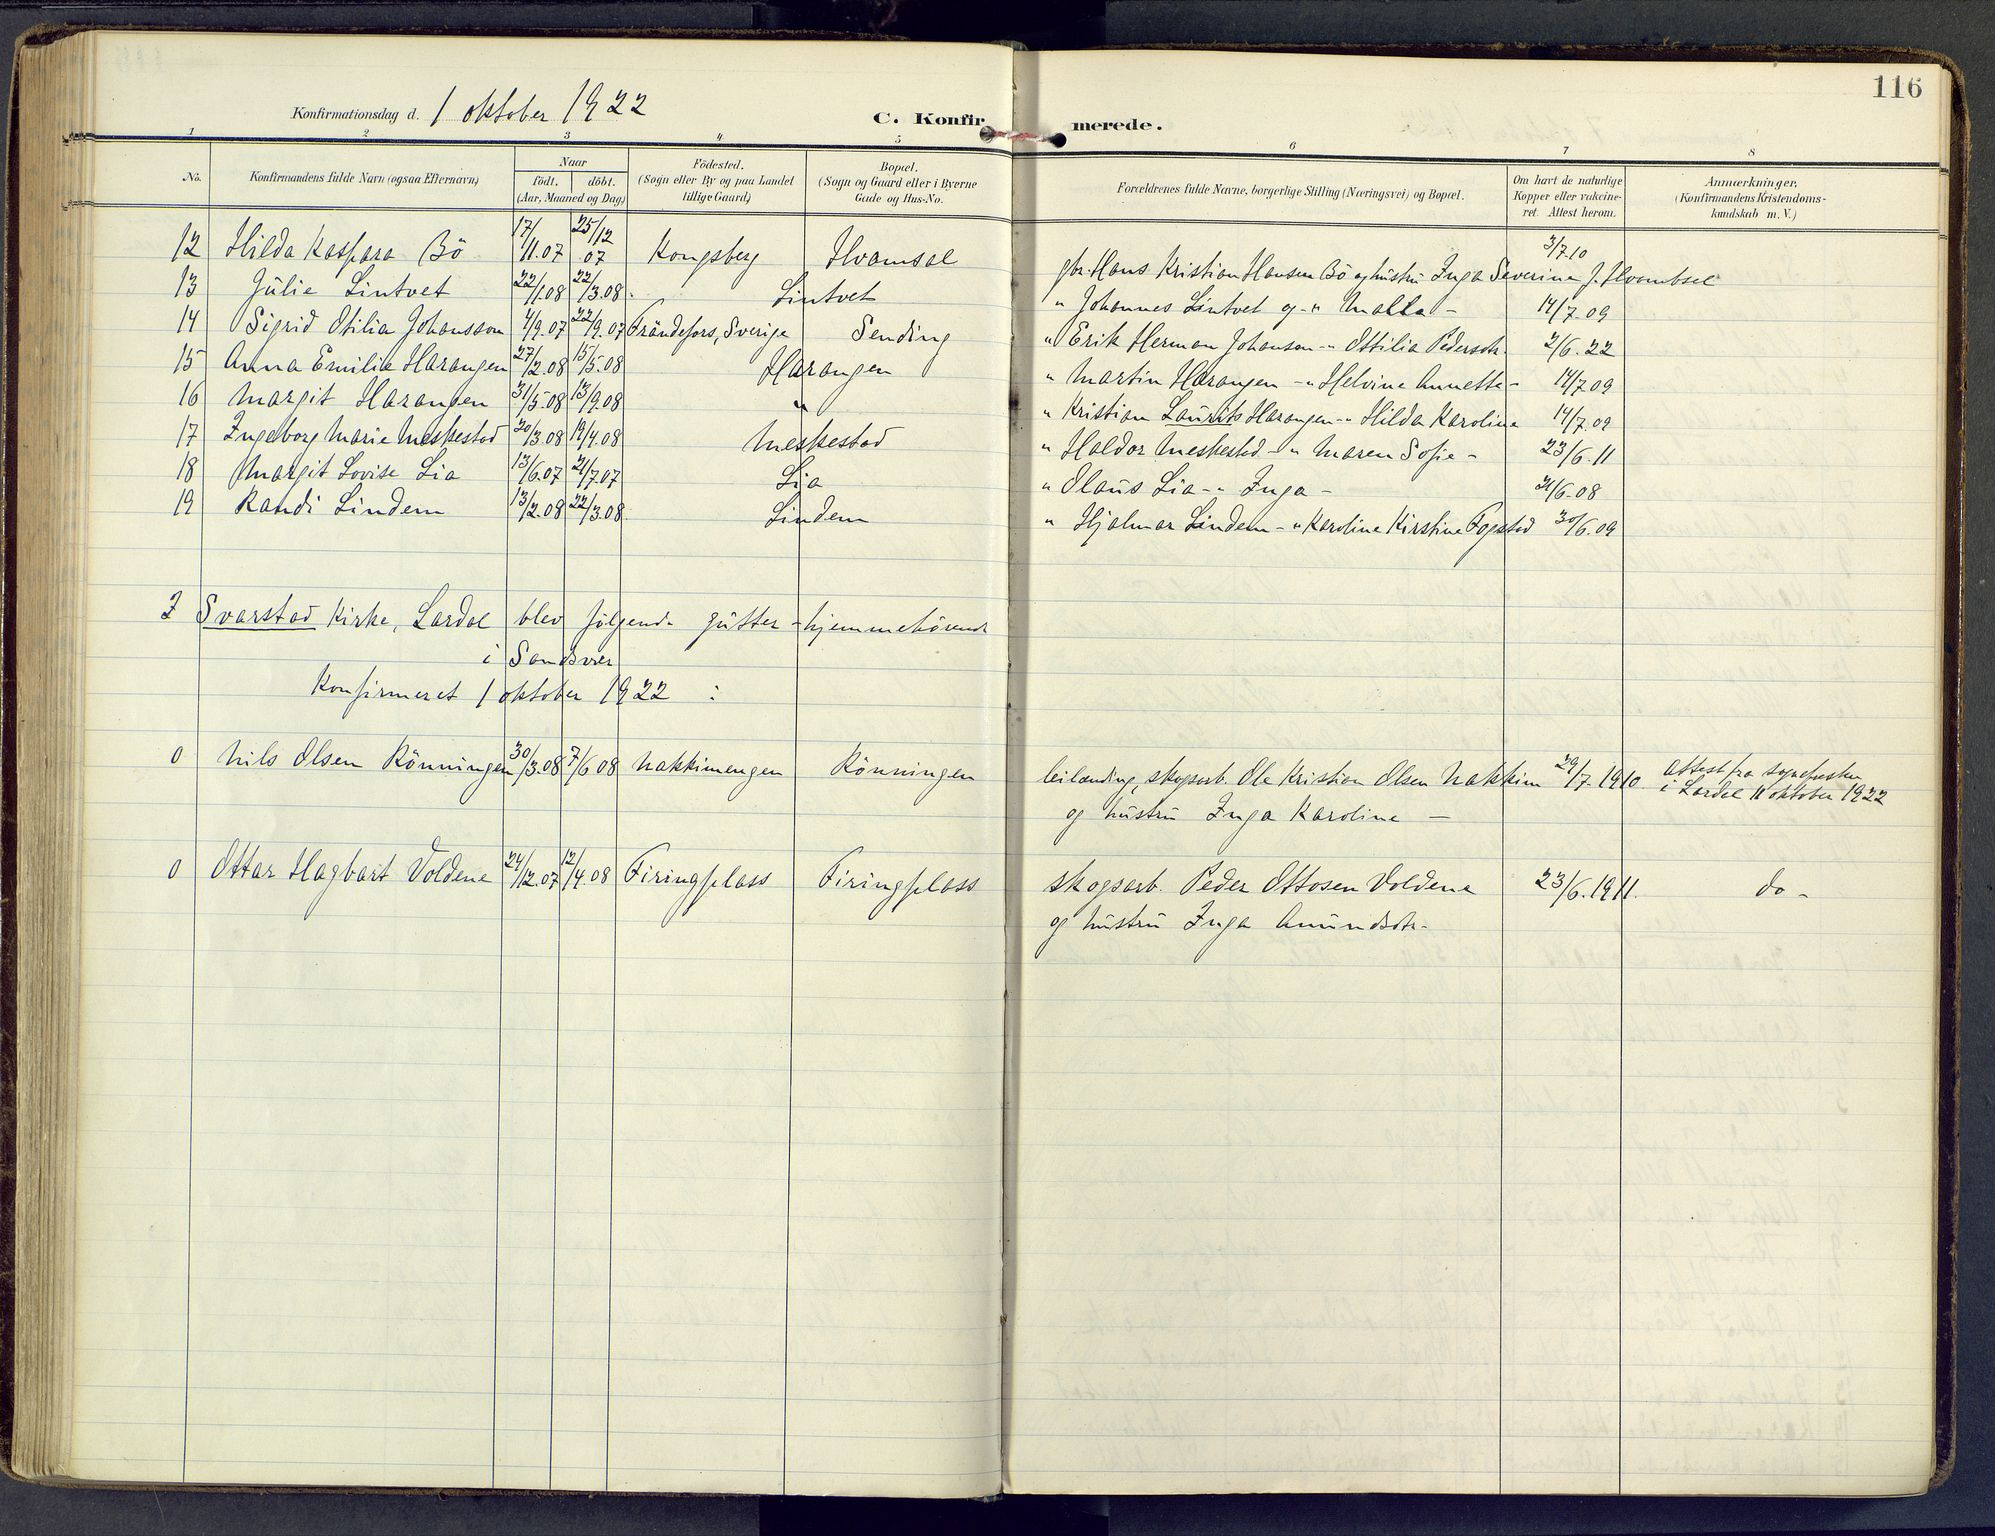 116
Konfirmationsdag d. 1 oktober 1922 C. Konfirmerede.
1 2 3 4 5 6 7 8
No. Konfirmandens fulde Navn (ogsaa Efternavn) Naar födt. döbt. (Aar, Maaned og Dag) Födested. (Sogn eller By og paa Landet tillige Gaard) Bopæl. (Sogn og Gaard eller i Byerne Gade og Hus-No. Forældrenes fulde Navne, borgerlige Stilling (Næringsvei) og Bopæl. Om havt de naturlige Kopper eller vakcineret. Attest herom. Anmærkninger, (Konfirmandens Kristendomskundskab m. V.)
12 Hilda Kaspara Bö 17/11.07 25/12 07 Kongsberg Hvamsal gbr. Hans Kristian Hansen Bö og hustru Inga Severine J. Hvambsal 3/7.10
13 Julie Lintvet 22/1.08 22/3.08. Lintvet " Johannes Lintvet og -"- Malla - 14/7.09
14 Sigrid Otilia Johansson 4/9.07 22/9.07 Frändefors, Sverige Sending " Erik Herman Johansen -"- Ottilia Pedersdtr. 2/6.22
15 Anna Emilie Harangen 27/2.08 15/5.08 Harangen " Martin Harangen -"- Helvine Annette - 14/7.09
16 Margit Harangen 31/5.08 13/9.08 " " Kristian Laurits Harangen -"- Hilda Karoline 14/7.09
17 Ingeborg Marie Meskestad 30/3.08 19/4.08 Meskestad " Haldor Meskestad -"- Maren Sofie - 23/6.11
18 Margit Lovise Lia 13/6.07 21/7.07 Lia " Olaus Lia -"- Inga - 21/6.08
19 Randi Lindem 13/2.08 22/3.08. Lindem " Hjalmar Lindem -"- Karoline Kirstine Fogstad 30/6.09
I Svarstad Kirke, Lardal blev følgende gutter - hjemmehörende
i Sandsvær
konfirmeret 1 oktober 1922 :
0 Nils Olsen Rönningen 30/3.08 7/6 08 Nakkimengen Rönningen leilænding, skogsarb. Ole Kristian Olsen Nakkim 29/7.1910. Attest fra sognepresten
og hustru Inga Karoline — i Lardal 11 oktober 1922
0 Ottar Hagbart Voldene 24/12.07 12/4.08 Firingplass Firingplass skogsarb. Peder Ottosen Voldene 23/6.1911. do -
og hustru Inga Amundsdtr.